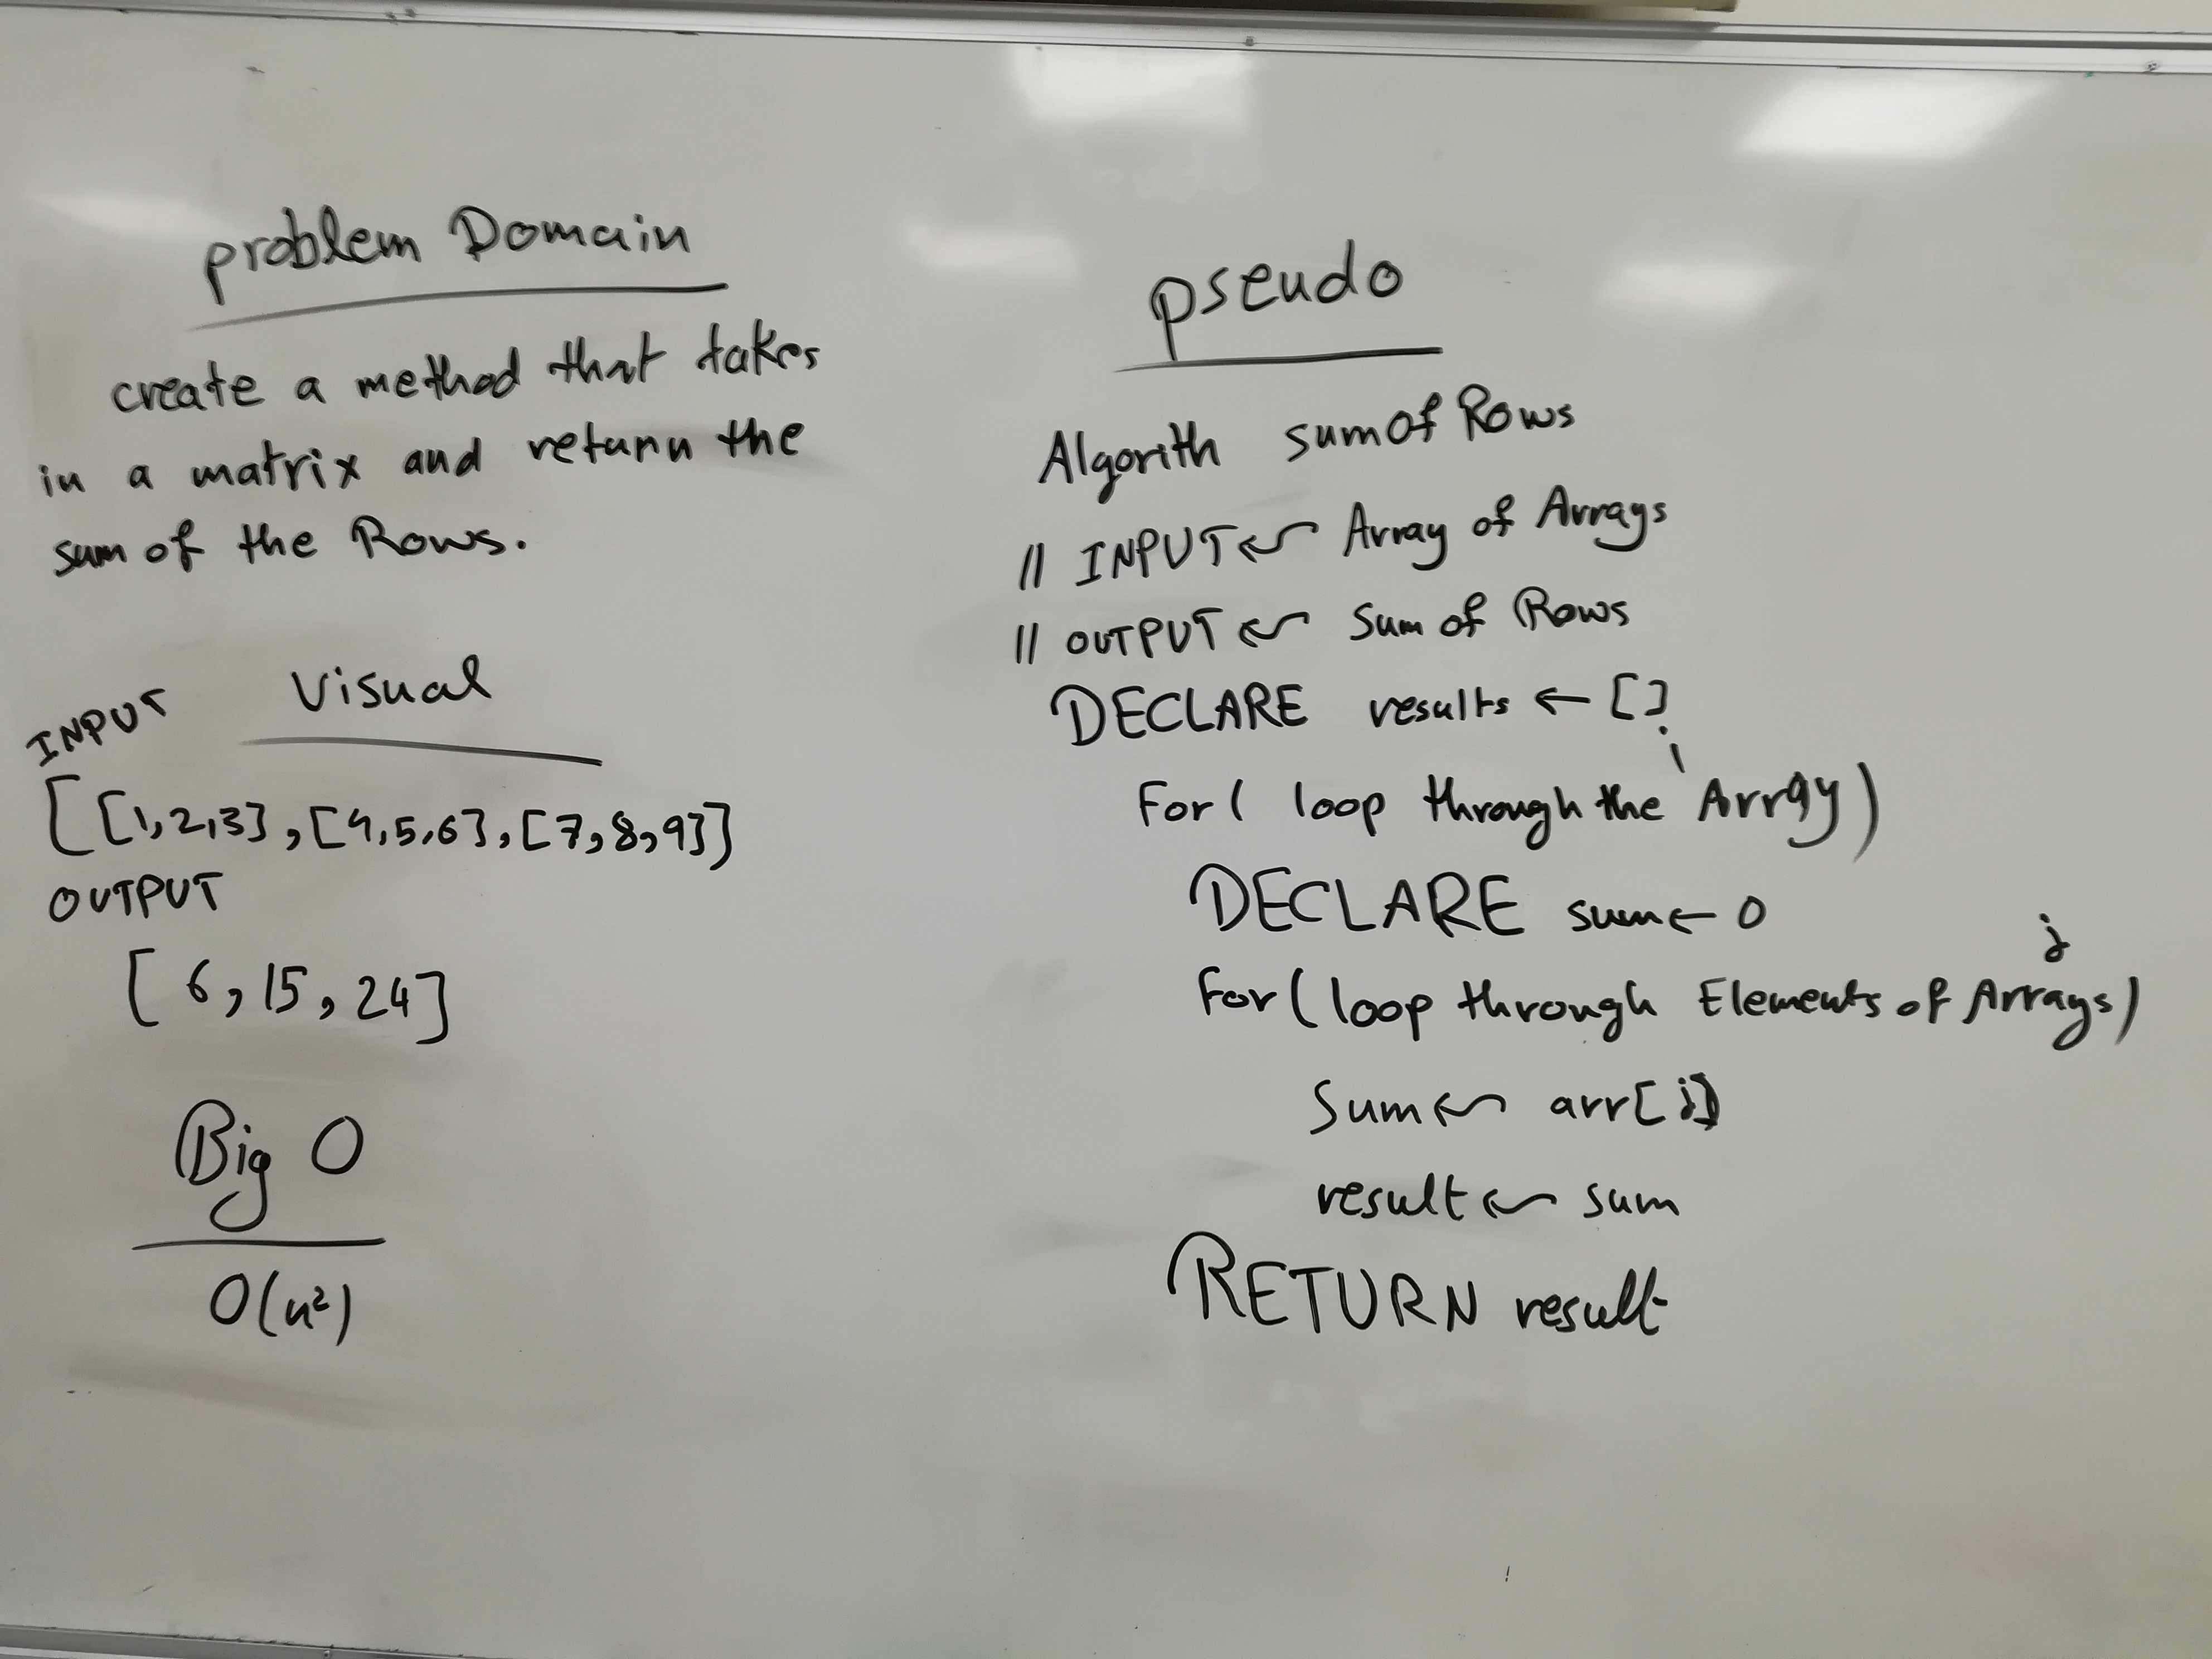 problem Domain
create a method that takes
in a matrix and return the
sum of the Rows.
Visual
INPUT
[[1,2,3],[4,5,6],[7,8,9]]
OUTPUT
[6,15,24]
Big O
O(n²)
pseudo
Algorith sumOfRows
// INPUT ← Array of Arrays
// OUTPUT ← Sum of Rows
DECLARE results ← []
i
For( loop through the Array)
DECLARE sum ← 0
j
For(loop through Elements of Arrays)
Sum ← arr[j]
result ← sum
RETURN result